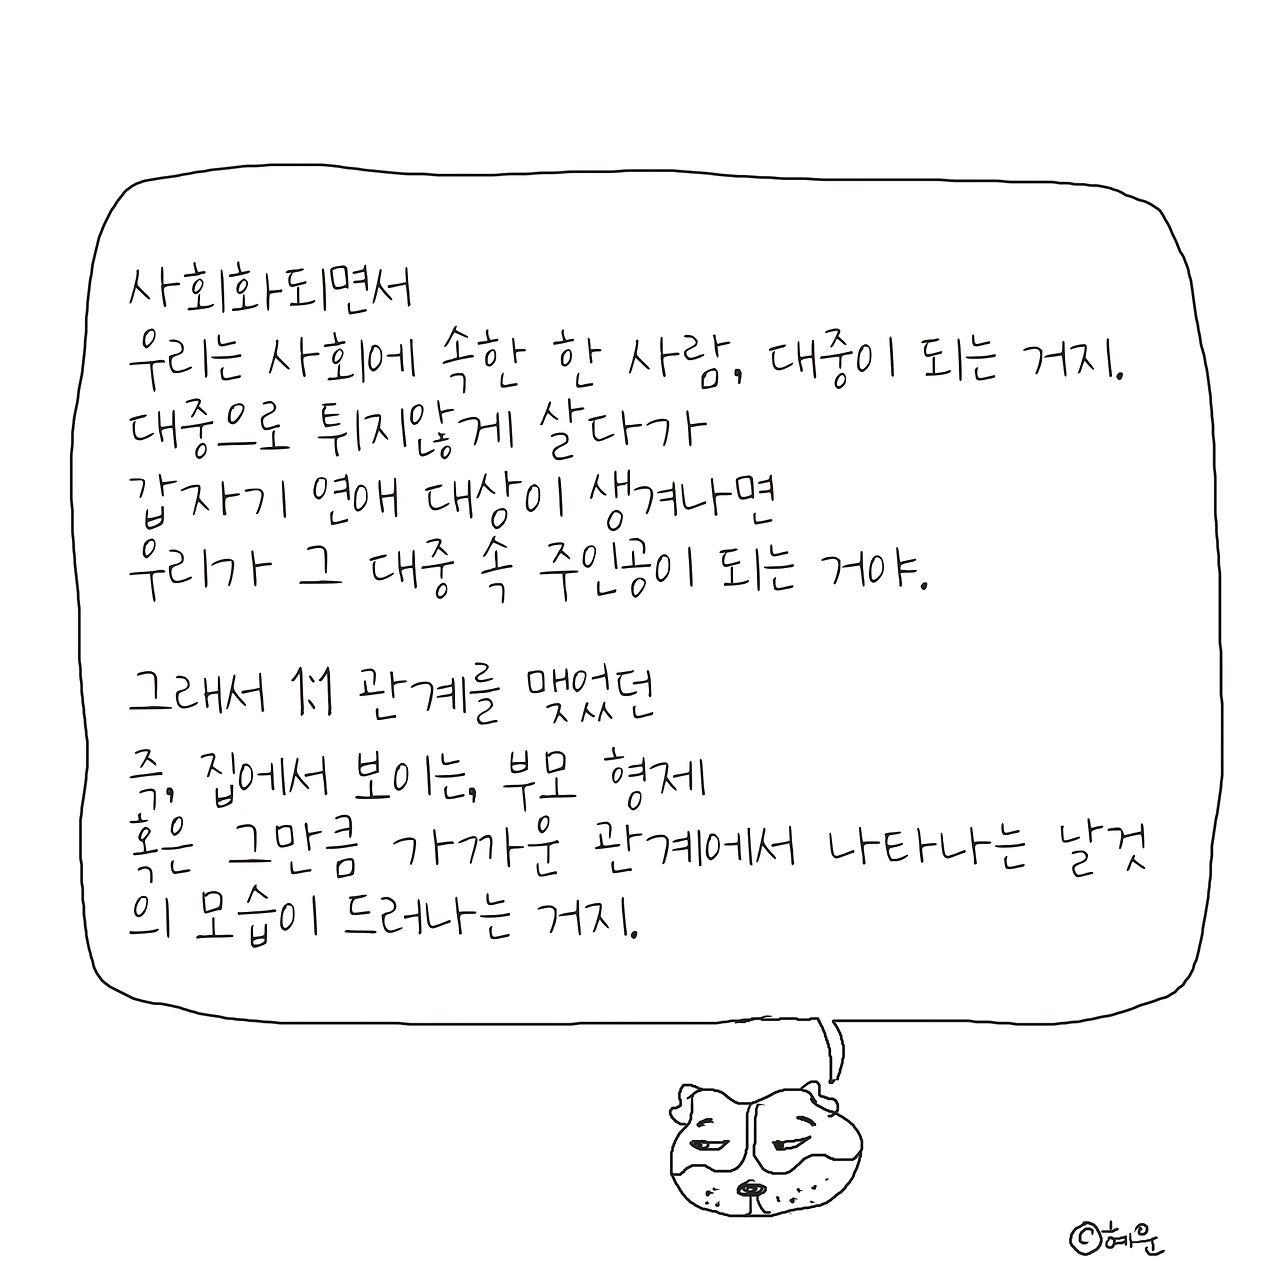 사회화되면서
우리는 사회에 속한 한 사람, 대중이 되는 거지.
대중으로 튀지않게 살다가
갑자기 연애 대상이 생겨나면
우리가 그 대중 속 주인공이 되는 거야.
그래서 1:1 관계를 맺었던
즉, 집에서 보이는, 부모 형제
혹은 그만큼 가까운 관계에서 나타나는 날것
의 모습이 드러나는 거지.
©혜운